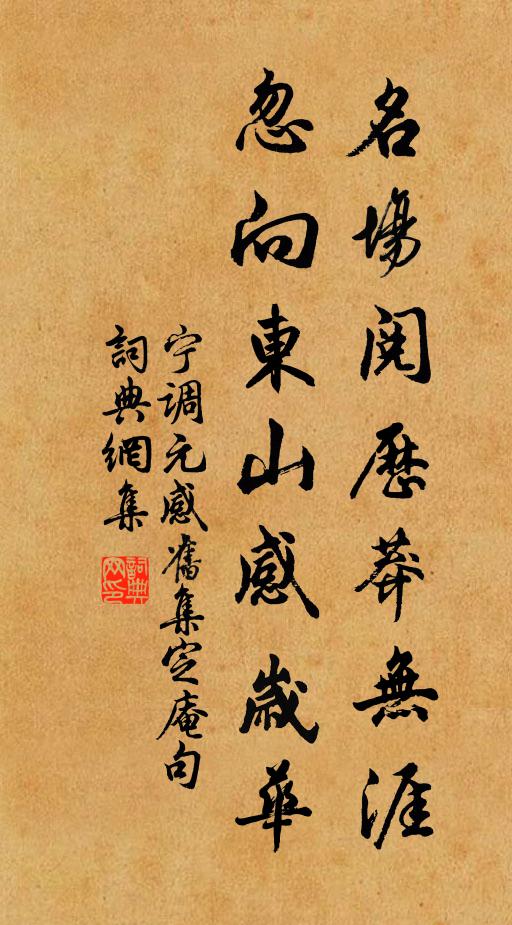 名場閱歷莽無涯
忽向東山感歲華
宁调元感舊集定庵句
詞典網集
詞典網印